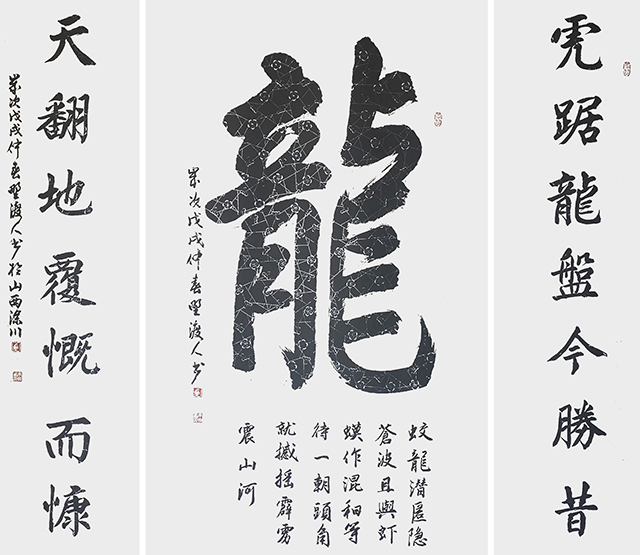 虎踞龍盤今勝昔
龍
歲次戊戌仲春野渡人书
蛟龍潜匿隐
蒼波且與虾
蟆作混和等
待一朝頭角
就撼摇霹雳
震山河
天翻地覆慨而慷
歲次戊戌仲春野渡人书於山西深川